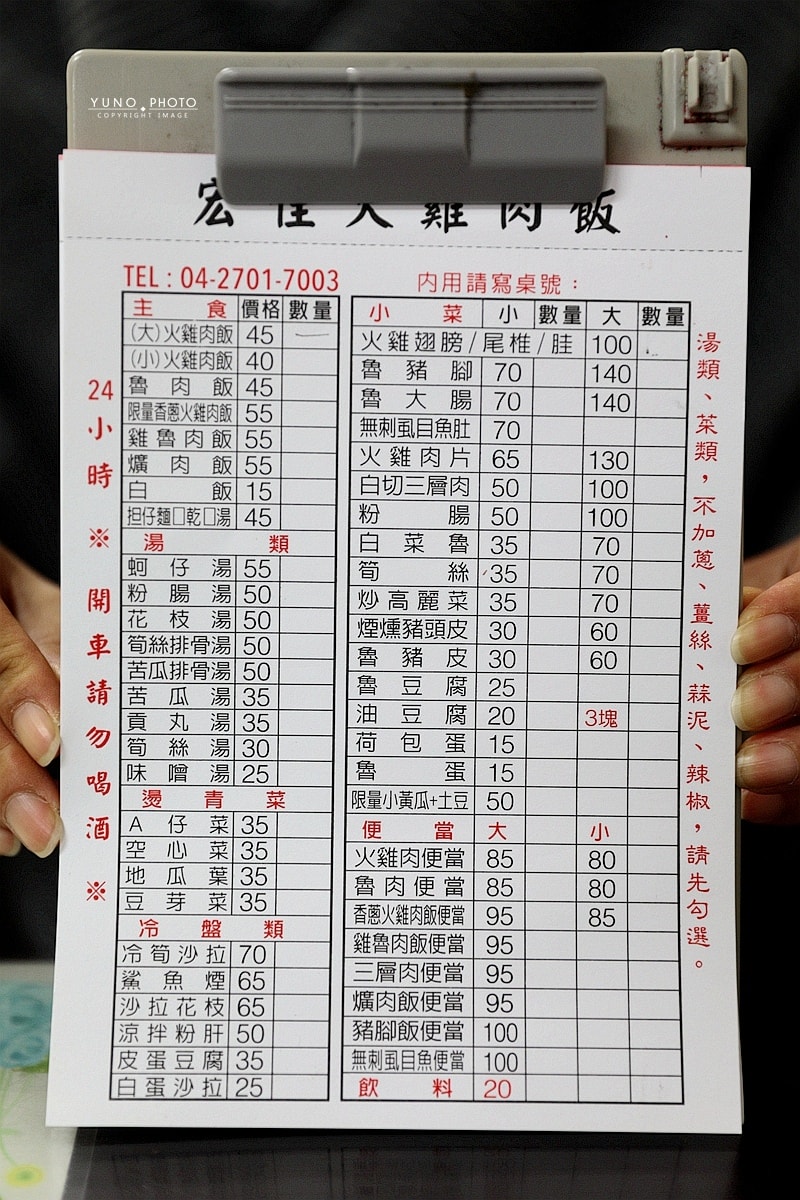 YUNO PHOTO
COPYRIGHT IMAGE
宏佳火雞肉飯
TEL : 04-2701-7003
內用請寫桌號：
24小時 ※ 開車請勿喝酒 ※
主食 價格 數量
(大)火雞肉飯 45
(小)火雞肉飯 40
魯肉飯 45
限量香蔥火雞肉飯 55
雞魯肉飯 55
爌肉飯 55
白飯 15
担仔麵□乾□湯 45
湯類
蚵仔湯 55
粉腸湯 50
花枝湯 50
筍絲排骨湯 50
苦瓜排骨湯 50
苦瓜湯 35
貢丸湯 35
筍絲湯 30
味噌湯 25
燙青菜
A仔菜 35
空心菜 35
地瓜葉 35
豆芽菜 35
冷盤類
冷筍沙拉 70
鯊魚煙 65
沙拉花枝 65
涼拌粉肝 50
皮蛋豆腐 35
白蛋沙拉 25
小菜 小 數量 大 數量
火雞翅膀/尾椎/胿 100
魯豬腳 70 140
魯大腸 70 140
無刺虱目魚肚 70
火雞肉片 65 130
白切三層肉 50 100
粉腸 50 100
白菜魯 35 70
筍絲 35 70
炒高麗菜 35 70
煙燻豬頭皮 30 60
魯豬皮 30 60
魯豆腐 25
油豆腐 20 3塊
荷包蛋 15
魯蛋 15
限量小黃瓜+土豆 50
便當 大 小
火雞肉便當 85 80
魯肉便當 85 80
香蔥火雞肉飯便當 95 85
雞魯肉飯便當 95
三層肉便當 95
爌肉飯便當 95
豬腳飯便當 100
無刺虱目魚便當 100
飲料 20
湯類、菜類，不加蔥、薑絲、蒜泥、辣椒，請先勾選。